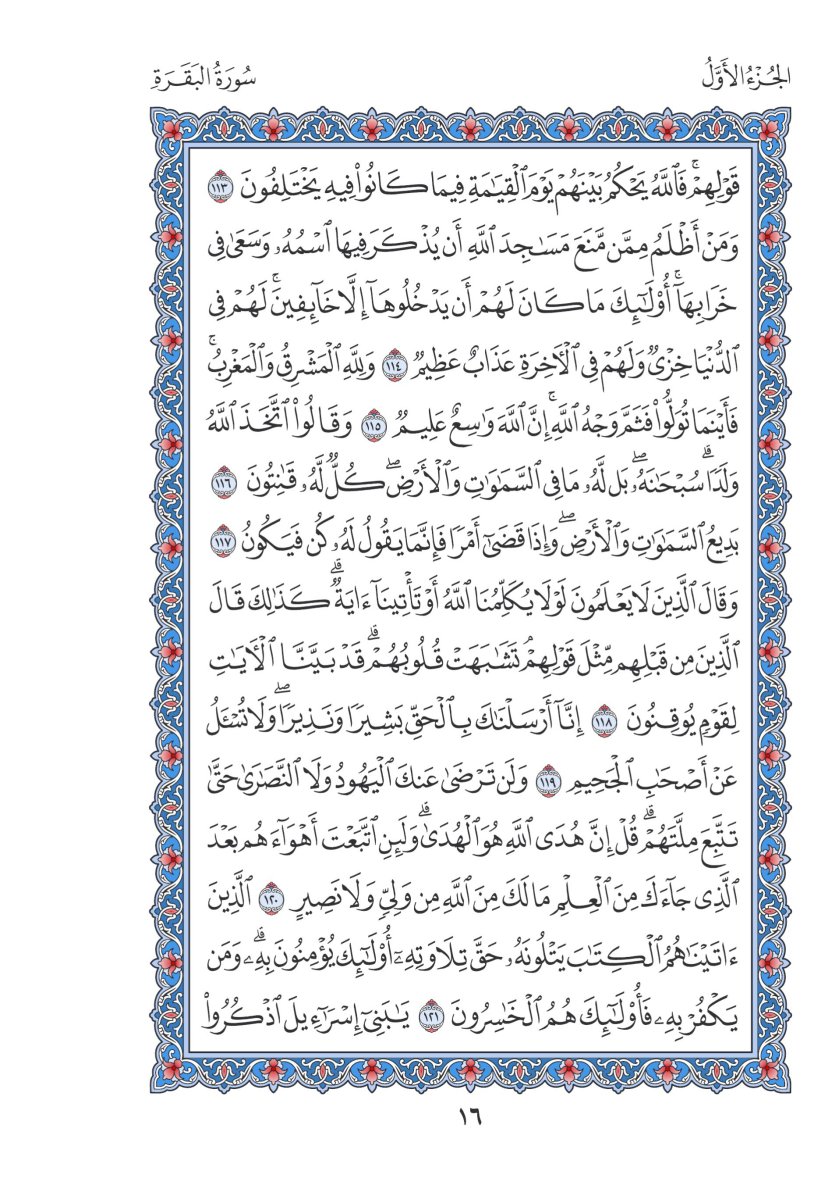 الجُزْءُ الأَوَّلُ
سُورَةُ البَقَرَةِ
قَوْلِهِمْۚ فَٱللَّهُ يَحْكُمُ بَيْنَهُمْ يَوْمَ ٱلْقِيَٰمَةِ فِيمَا كَانُوا۟ فِيهِ يَخْتَلِفُونَ ١١٣
وَمَنْ أَظْلَمُ مِمَّن مَّنَعَ مَسَٰجِدَ ٱللَّهِ أَن يُذْكَرَ فِيهَا ٱسْمُهُۥ وَسَعَىٰ فِى
خَرَابِهَآۚ أُو۟لَٰٓئِكَ مَا كَانَ لَهُمْ أَن يَدْخُلُوهَآ إِلَّا خَآئِفِينَۚ لَهُمْ فِى
ٱلدُّنْيَا خِزْىٌ وَلَهُمْ فِى ٱلْأَخِرَةِ عَذَابٌ عَظِيمٌ ١١٤ وَلِلَّهِ ٱلْمَشْرِقُ وَٱلْمَغْرِبُۚ
فَأَيْنَمَا تُوَلُّوا۟ فَثَمَّ وَجْهُ ٱللَّهِۚ إِنَّ ٱللَّهَ وَٰسِعٌ عَلِيمٌ ١١٥ وَقَالُوا۟ ٱتَّخَذَ ٱللَّهُ
وَلَدًاۗ سُبْحَٰنَهُۥۖ بَل لَّهُۥ مَا فِى ٱلسَّمَٰوَٰتِ وَٱلْأَرْضِۖ كُلٌّ لَّهُۥ قَٰنِتُونَ ١١٦
بَدِيعُ ٱلسَّمَٰوَٰتِ وَٱلْأَرْضِۖ وَإِذَا قَضَىٰٓ أَمْرًا فَإِنَّمَا يَقُولُ لَهُۥ كُن فَيَكُونُ ١١٧
وَقَالَ ٱلَّذِينَ لَا يَعْلَمُونَ لَوْلَا يُكَلِّمُنَا ٱللَّهُ أَوْ تَأْتِينَآ ءَايَةٌۗ كَذَٰلِكَ قَالَ
ٱلَّذِينَ مِن قَبْلِهِم مِّثْلَ قَوْلِهِمْۘ تَشَٰبَهَتْ قُلُوبُهُمْۗ قَدْ بَيَّنَّا ٱلْأَيَٰتِ
لِقَوْمٍ يُوقِنُونَ ١١٨ إِنَّآ أَرْسَلْنَٰكَ بِٱلْحَقِّ بَشِيرًا وَنَذِيرًاۖ وَلَا تُسْـَٔلُ
عَنْ أَصْحَٰبِ ٱلْجَحِيمِ ١١٩ وَلَن تَرْضَىٰ عَنكَ ٱلْيَهُودُ وَلَا ٱلنَّصَٰرَىٰ حَتَّىٰ
تَتَّبِعَ مِلَّتَهُمْۗ قُلْ إِنَّ هُدَى ٱللَّهِ هُوَ ٱلْهُدَىٰۗ وَلَئِنِ ٱتَّبَعْتَ أَهْوَآءَهُم بَعْدَ
ٱلَّذِى جَآءَكَ مِنَ ٱلْعِلْمِۙ مَا لَكَ مِنَ ٱللَّهِ مِن وَلِىٍّ وَلَا نَصِيرٍ ١٢٠ ٱلَّذِينَ
ءَاتَيْنَٰهُمُ ٱلْكِتَٰبَ يَتْلُونَهُۥ حَقَّ تِلَاوَتِهِۦٓ أُو۟لَٰٓئِكَ يُؤْمِنُونَ بِهِۦۗ وَمَن
يَكْفُرْ بِهِۦ فَأُو۟لَٰٓئِكَ هُمُ ٱلْخَٰسِرُونَ ١٢١ يَٰبَنِىٓ إِسْرَٰٓءِيلَ ٱذْكُرُوا۟
١٦